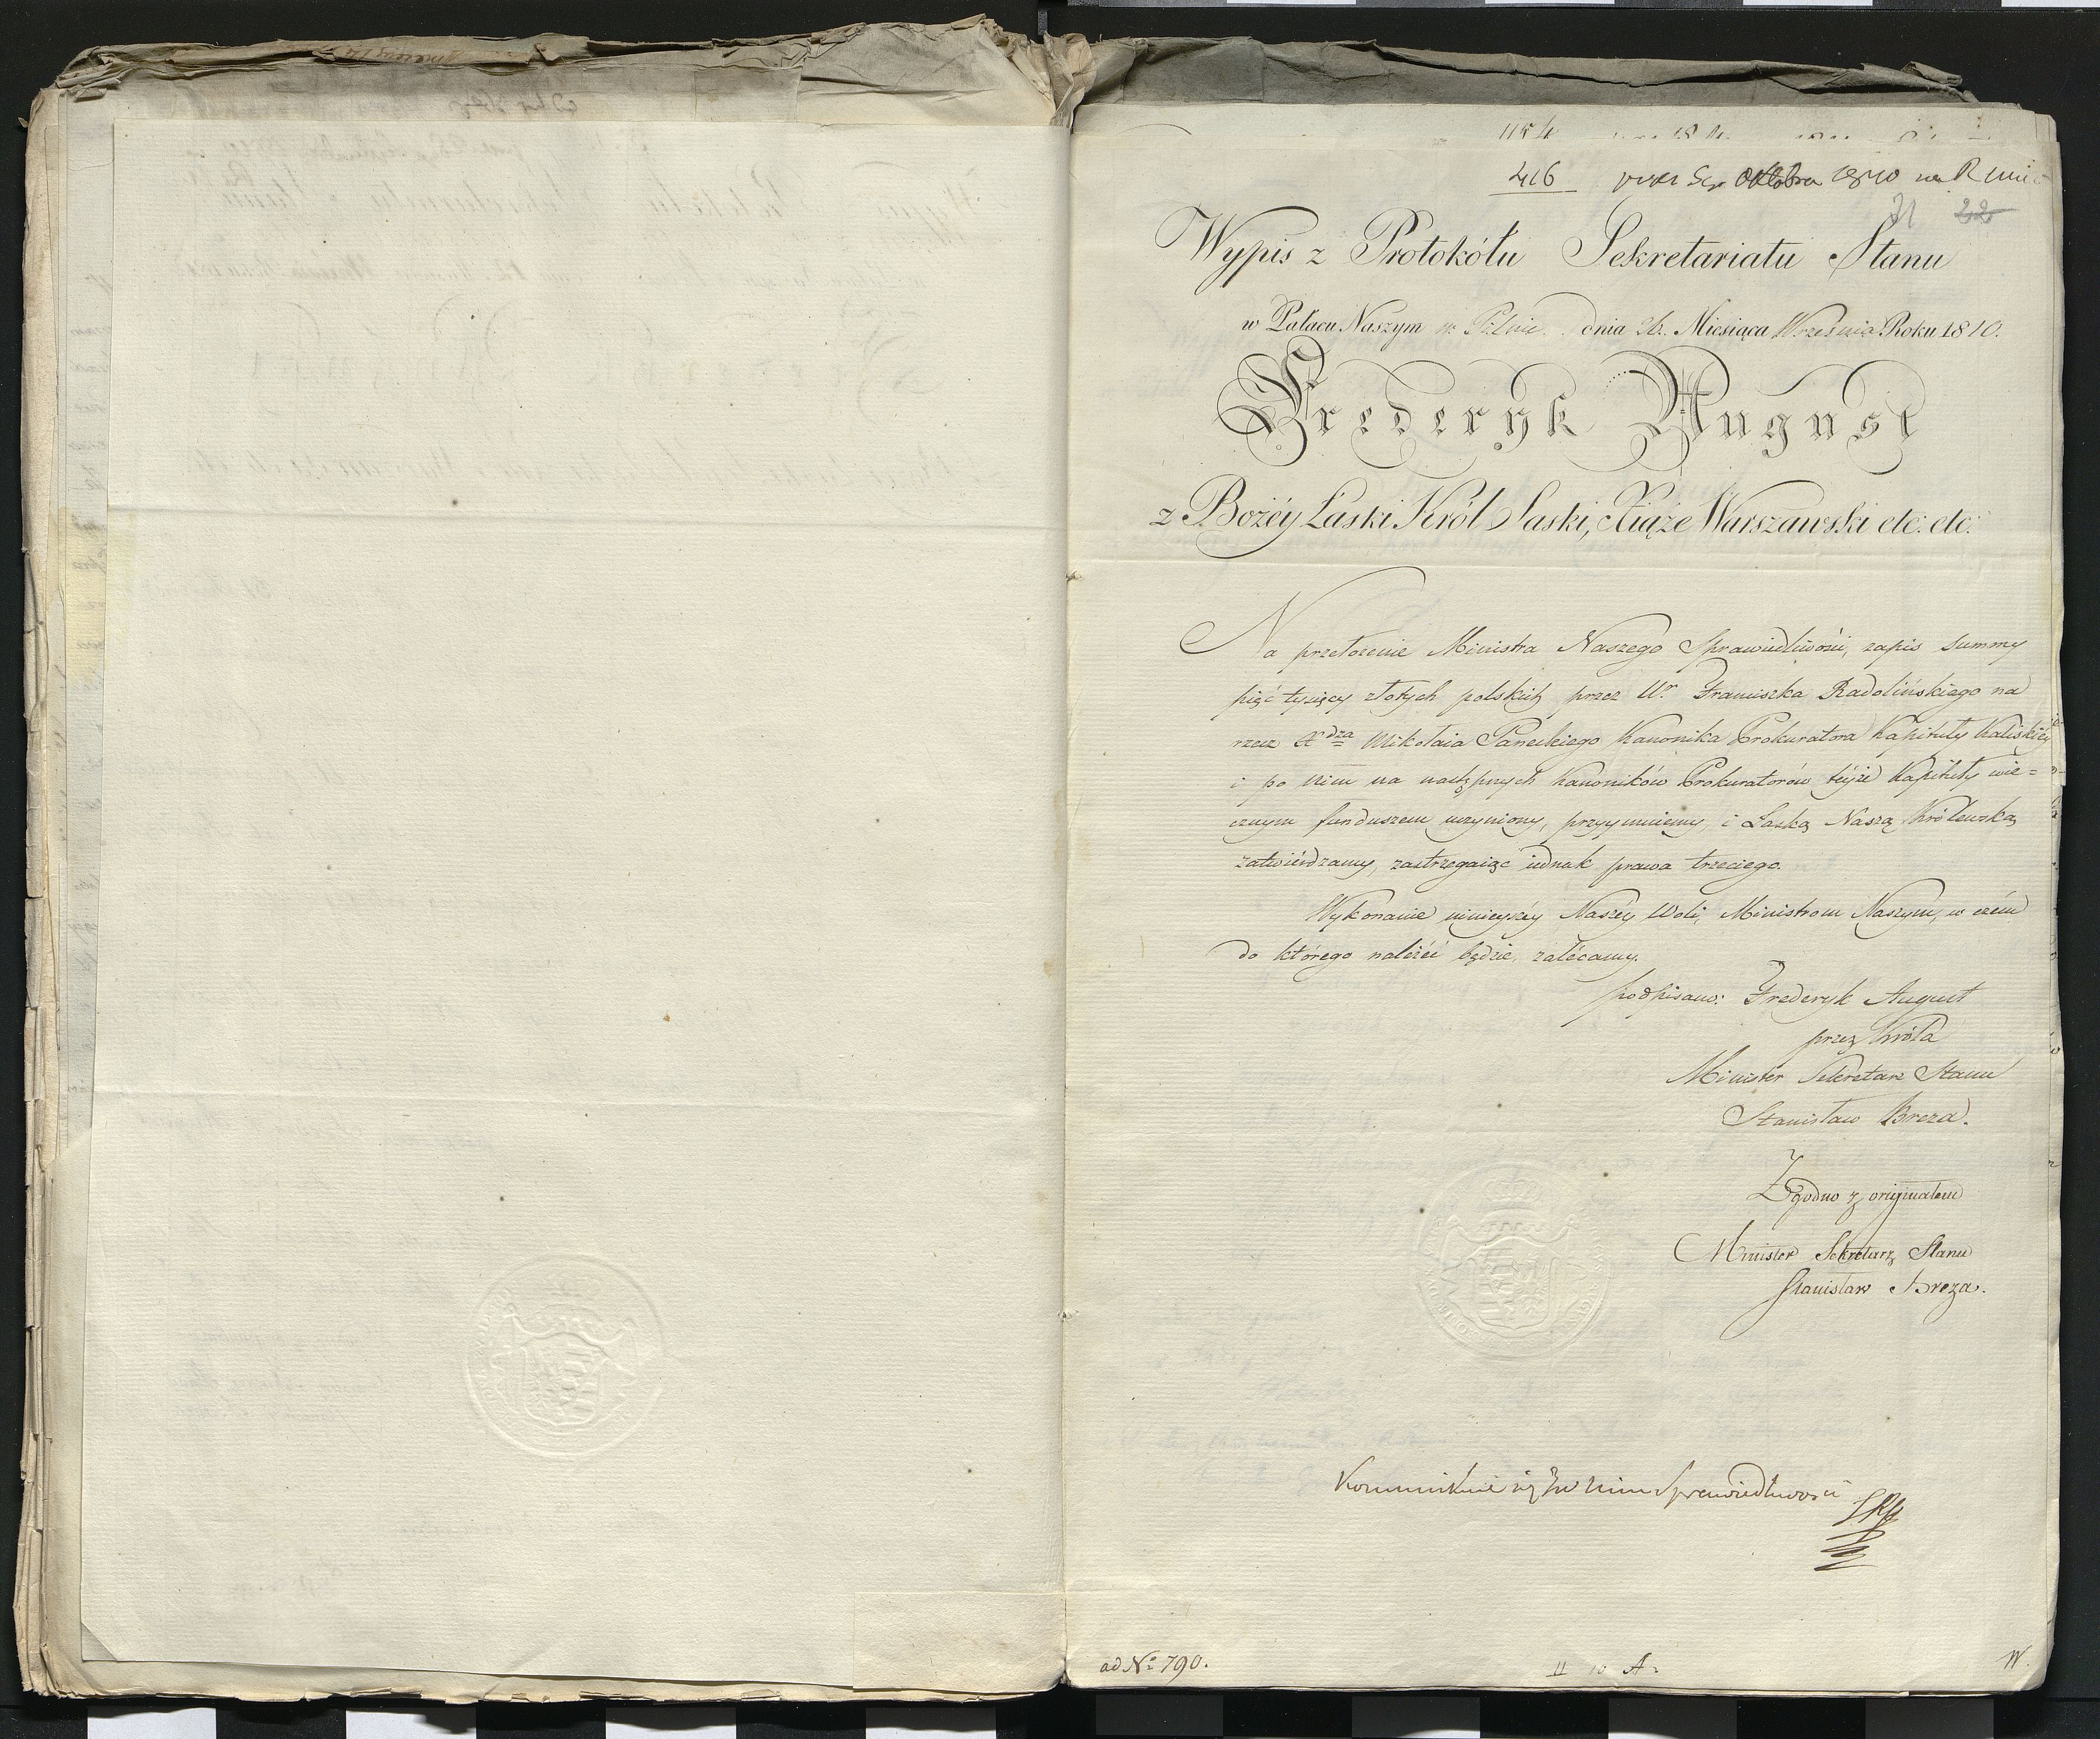 416
Oktobra 1810 na R
31 22
Wypis z Protokółu Sekretariatu Stanu
w Pałacu Naszym w Pilnic. dnia 26. Miesiąca Września Roku 1810.
Frederyk August
z Bożéy Łaski Król Saski, Xiąże Warszawski etc: etc:
Na przełożenie Ministra Naszego Sprawiedliwości, zapis summy
pięć tysięcy złotych polskich przez Ur. Franciszka Radolińskiego na
rzecz Xdza Mikołaia Paneckiego Kanonika Prokuratora Kapituły Kaliskiéy
i po nim na następnych Kanoników Prokuratorów téyże Kapituły wie=
cznym funduszem uczyniony, przyymuiemy, i Łaską Naszą Królewską
zatwiérdzamy, zastrzegaiąc iednak prawa trzeciego.
Wykonanie ninieyszéy Naszéy Woli, Ministrom Naszym, w czém
do którego należéć będzie, zalécamy.
podpisano: Frederyk August
przez Króla
Minister Sekretarz Stanu
Stanisław Breza.
Zgodno z originałem
Minister Sekretarz Stanu
Stanisław Breza.
Sprawiedliwości
ad No 790.
II 10 A
W.